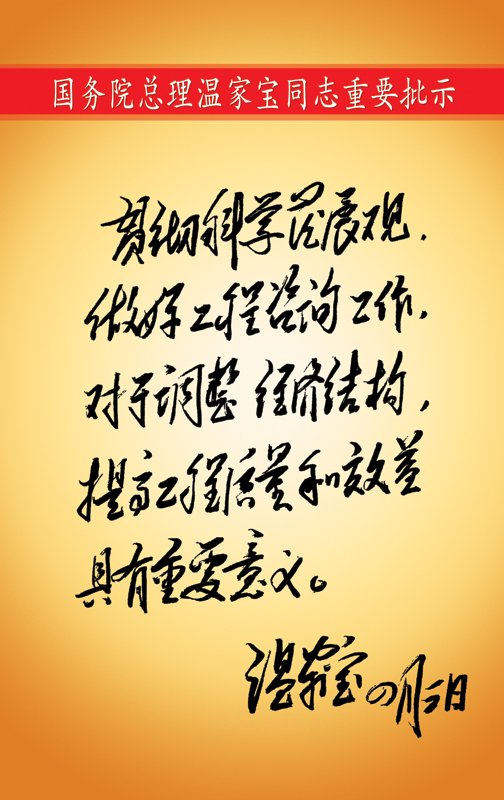 国务院总理温家宝同志重要批示
贯彻科学发展观，
做好工程咨询工作，
对于调整经济结构，
提高工程质量和效益
具有重要意义。
温家宝 四月二日